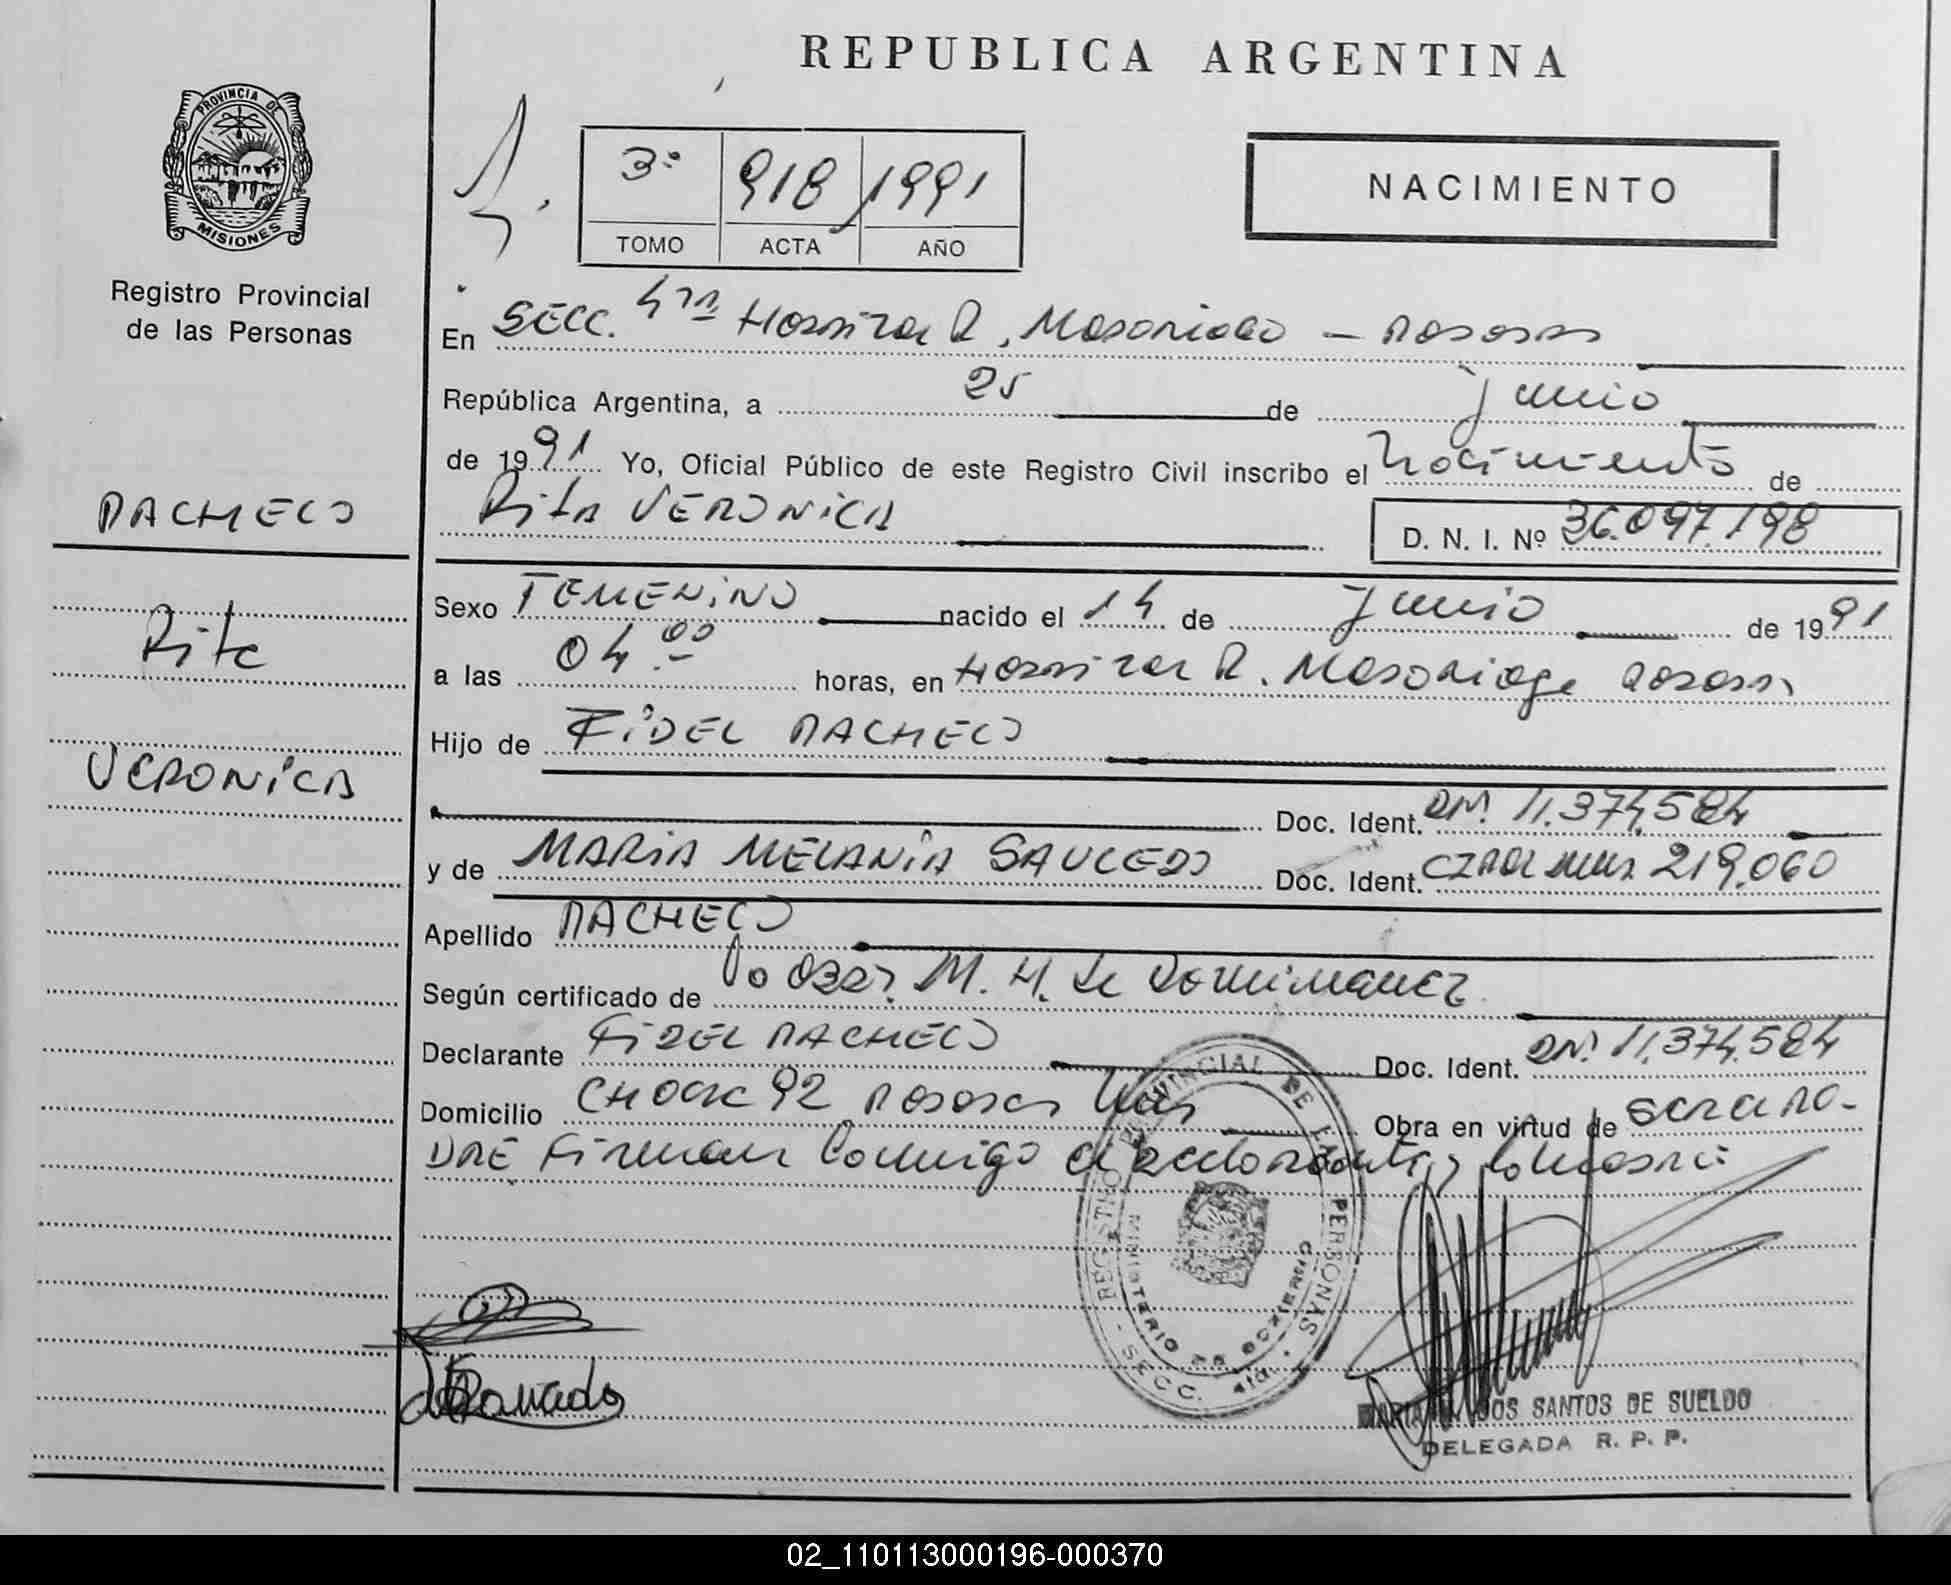 REPUBLICA ARGENTINA
PROVINCIA DE
MISIONES
Registro Provincial
de las Personas
3º 918 1991
TOMO ACTA AÑO
NACIMIENTO
En SECC. 4ta Hospital R. Madariaga - Posadas
República Argentina, a 25 de junio
de 1991 Yo, Oficial Público de este Registro Civil inscribo el Nacimiento de
PACHECO
Rita VERONICA D. N. I. Nº 36.097.198
Sexo FEMENINO nacido el 14 de junio de 1991
Rita
a las 04.00 horas, en Hospital R. Madariaga Posadas
Hijo de FIDEL PACHECO
VERONICA
Doc. Ident. DNI 11.374.584
y de MARIA MELANIA SAUCEDO Doc. Ident. 219.060
Apellido PACHECO
Según certificado de M. H. de
Declarante FIDEL PACHECO Doc. Ident. DNI 11.374.584
Domicilio CHACRA 92 Posadas Mnes Obra en virtud de ser el PA-
DRE Firman Conmigo el declarante y
REGISTRO PROVINCIAL DE LAS PERSONAS
MINISTERIO DE GOBIERNO
SECC. 4ta.
DOS SANTOS DE SUELDO
DELEGADA R. P. P.
02_110113000196-000370